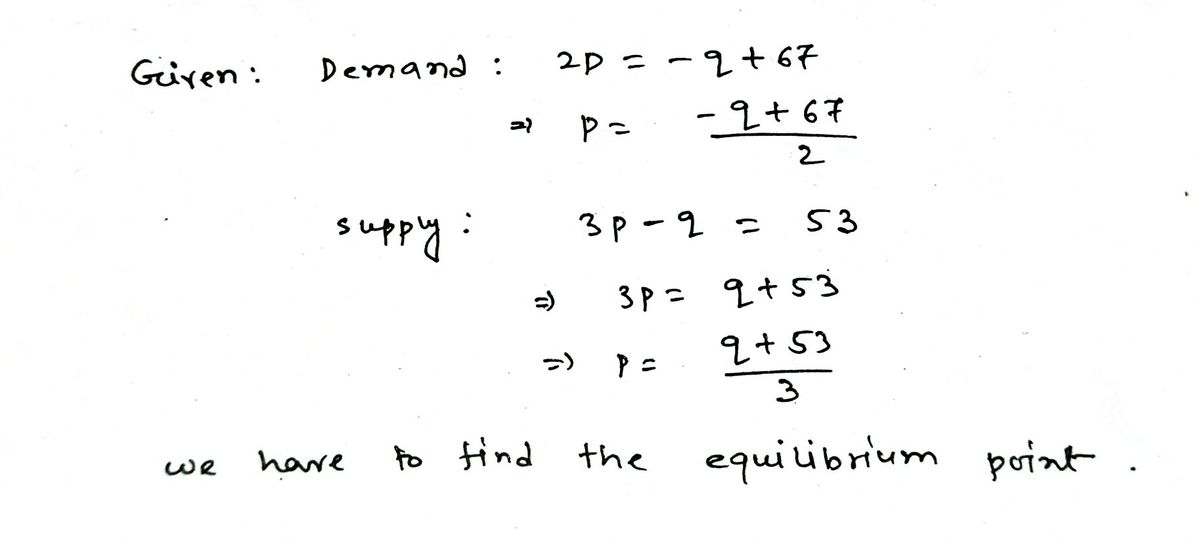 Given: Demand : 2p = -q + 67
=> p = (-q + 67)/2
supply : 3p - q = 53
=> 3p = q + 53
=> p = (q + 53)/3
we have to find the equilibrium point .